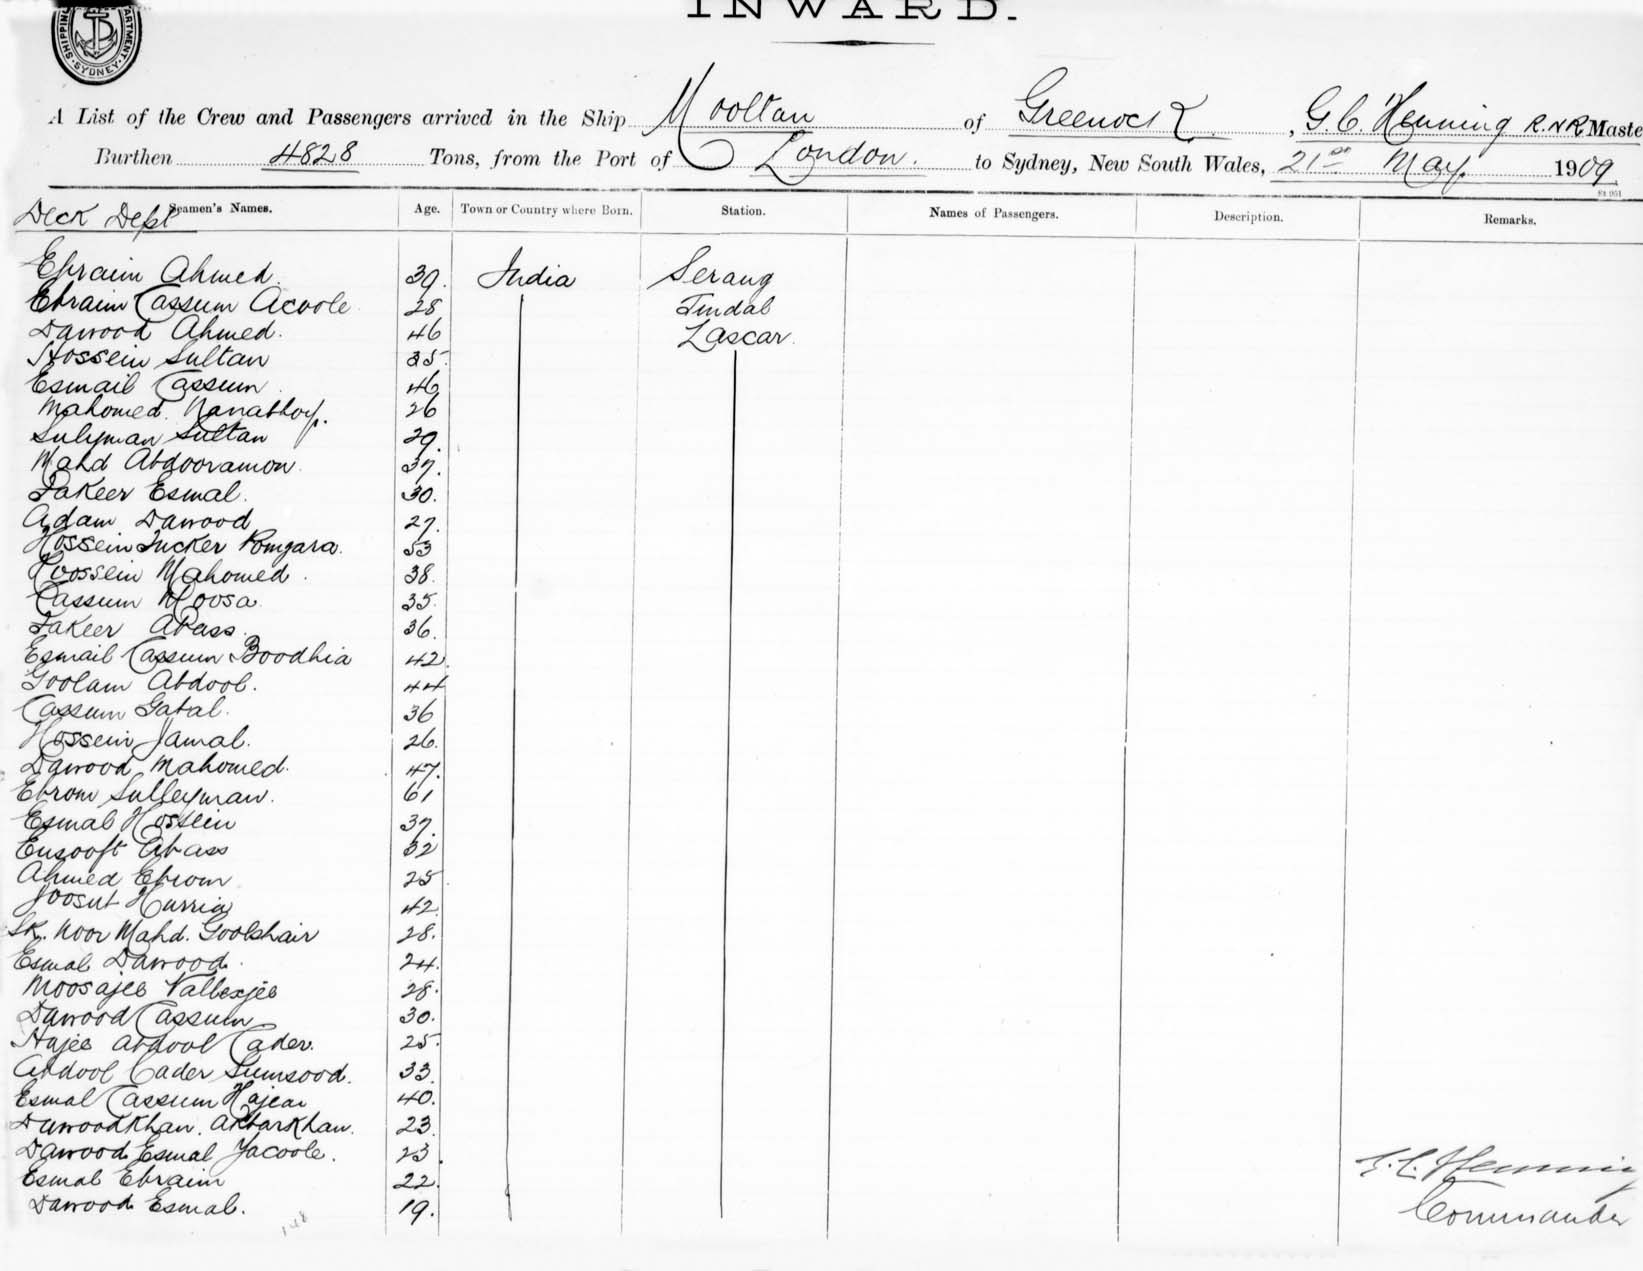 INWARD.
SHIPPING DEPARTMENT. SYDNEY
A List of the Crew and Passengers arrived in the Ship Mooltan of Greenock, G. C. Henning R.N.R. Maste
Burthen 4828 Tons, from the Port of London. to Sydney, New South Wales, 21st May. 1909
St 951
Deck Dept
Seamen's Names. Age. Town or Country where Born. Station. Names of Passengers. Description. Remarks.
Ebraim Ahmed. 39. India Serang
Ebraim Cassum Acoole 28 Tindal
Dawood Ahmed. 46 Lascar.
Hossein Sultan 35.
Esmail Cassum. 46
Mahomed. Nanabhoy. 26
Sulyman Sultan 29.
Mahd Abdooramon. 37.
Fakeer Esmal. 30.
Adam Dawood 27.
Hossein Tucker Pomgara. 53
Hoossein Mahomed. 38.
Cassum Moosa. 35.
Fakeer Abass. 36.
Esmail Cassum Boodhia 42.
Goolam Abdool. 44
Cassum Gabal. 36
Hossein Jamal. 26.
Dawood Mahomed. 47.
Ebrom Sulleyman. 61
Esmal Hossein 37.
Eusooft Abass 32
Ahmed Ebrom 25.
Joosub Hurria 42.
Sk. Noor Mahd. Goolshair 28.
Esmal Dawood. 24.
Moosajee Vallexjee 28.
Dawood Cassum 30.
Hajee Abdool Cader. 25.
Abdool Cader Sumsood. 33.
Esmal Cassum Hajeai 40.
Dawoodkhan. Akbarkhan. 23.
Dawood Esmal Yacoole. 23.
Esmal Ebraim 22.
Dawood Esmal. 19.
G. C. Henning
Commander
148